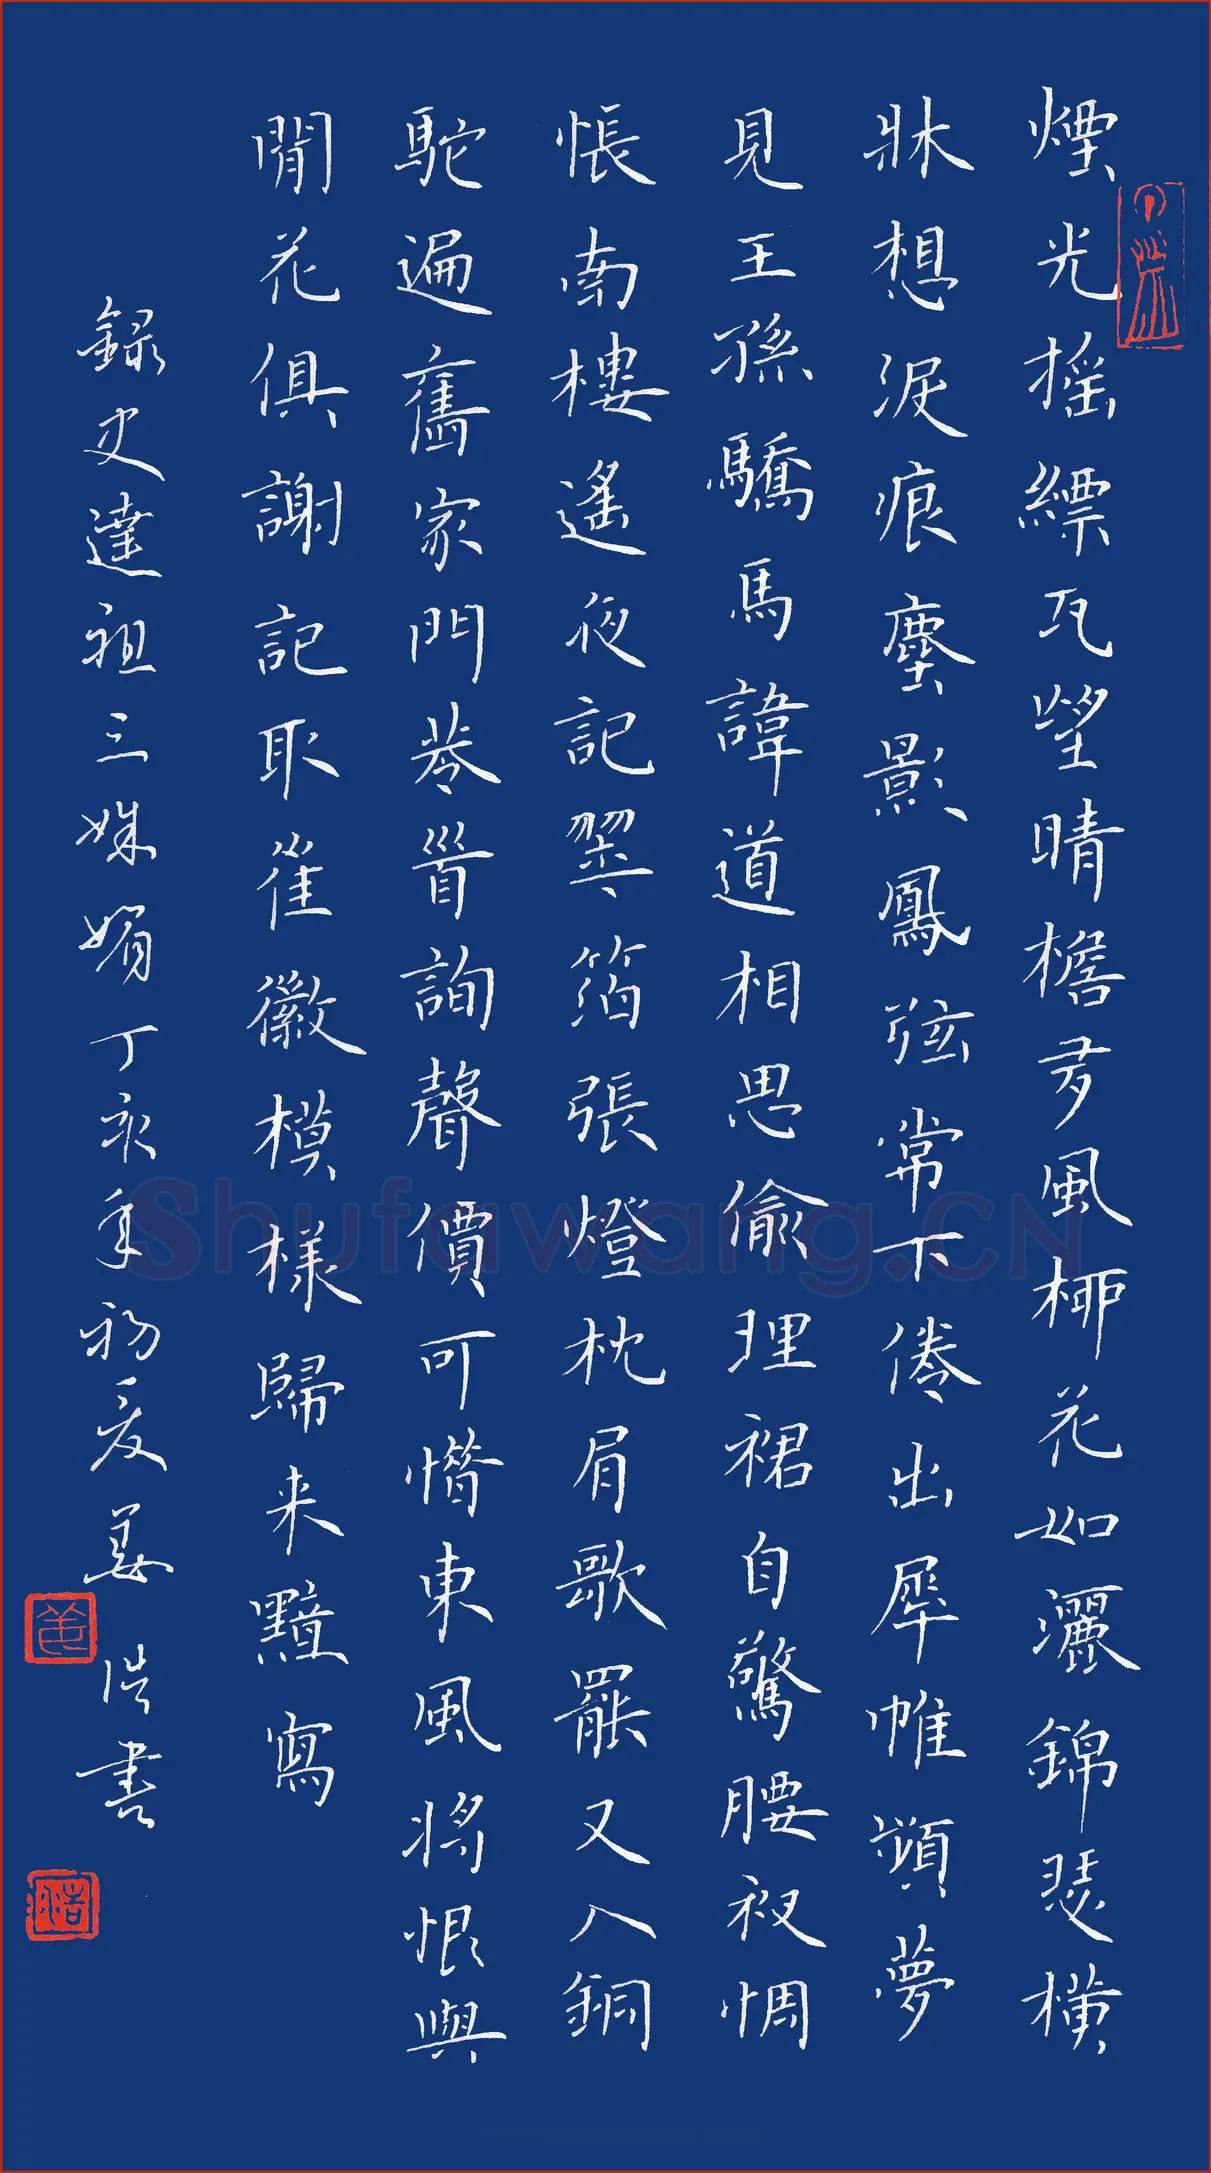 煙光摇縹瓦望晴檐多風柳花如灑錦瑟橫
牀想淚痕塵影鳳弦常下倦出犀帷頻夢
見王孫驕馬諱道相思偷理裙自驚腰衩惆
悵南樓遙夜記翠箔張燈枕肩歌罷又入銅
駝遍舊家門巷首詢聲價可惜東風將恨與
閒花俱謝記取崔徽模樣歸来黯寫
録史達祖三姝媚丁亥年初夏姜浩書
Shufawang.CN